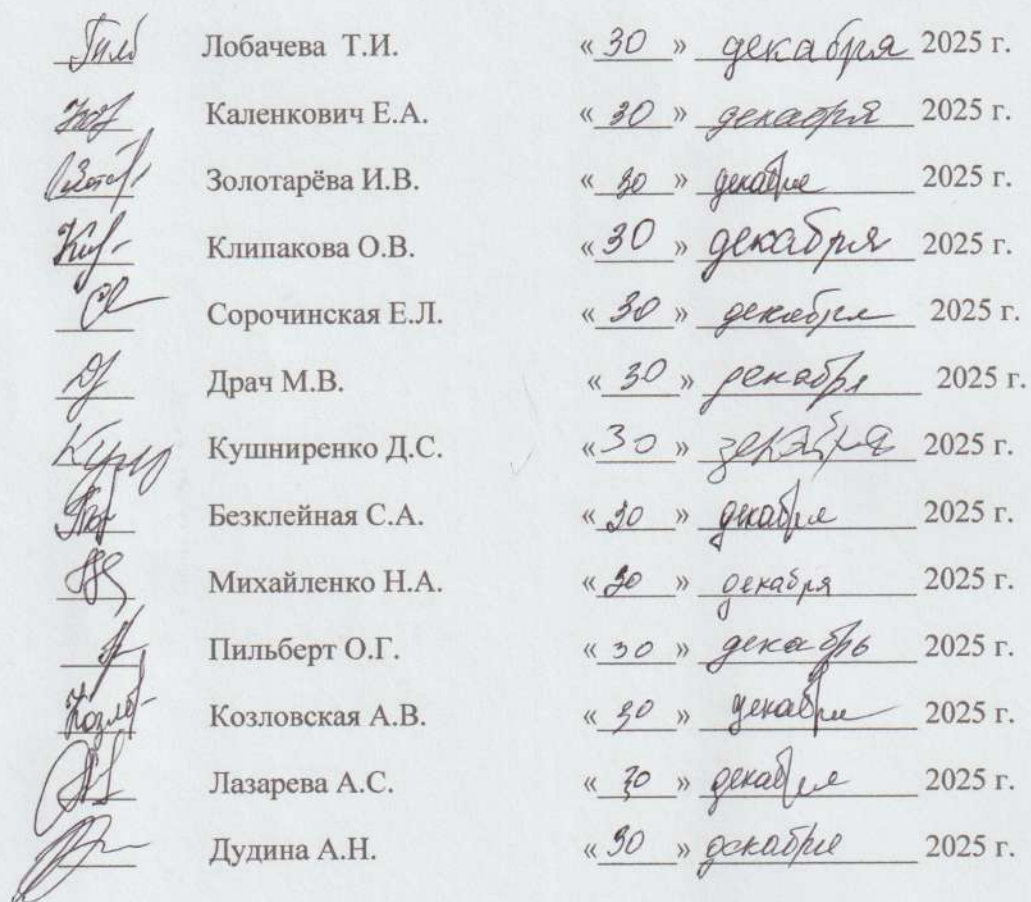 Лобачева Т.И. «30» декабря 2025 г.
Каленкович Е.А. «30» декабря 2025 г.
Золотарёва И.В. «30» декабря 2025 г.
Клипакова О.В. «30» декабря 2025 г.
Сорочинская Е.Л. «30» декабря 2025 г.
Драч М.В. «30» декабря 2025 г.
Кушниренко Д.С. «30» декабря 2025 г.
Безклейная С.А. «30» декабря 2025 г.
Михайленко Н.А. «30» декабря 2025 г.
Пильберт О.Г. «30» декабрь 2025 г.
Козловская А.В. «30» декабря 2025 г.
Лазарева А.С. «30» декабря 2025 г.
Дудина А.Н. «30» декабря 2025 г.